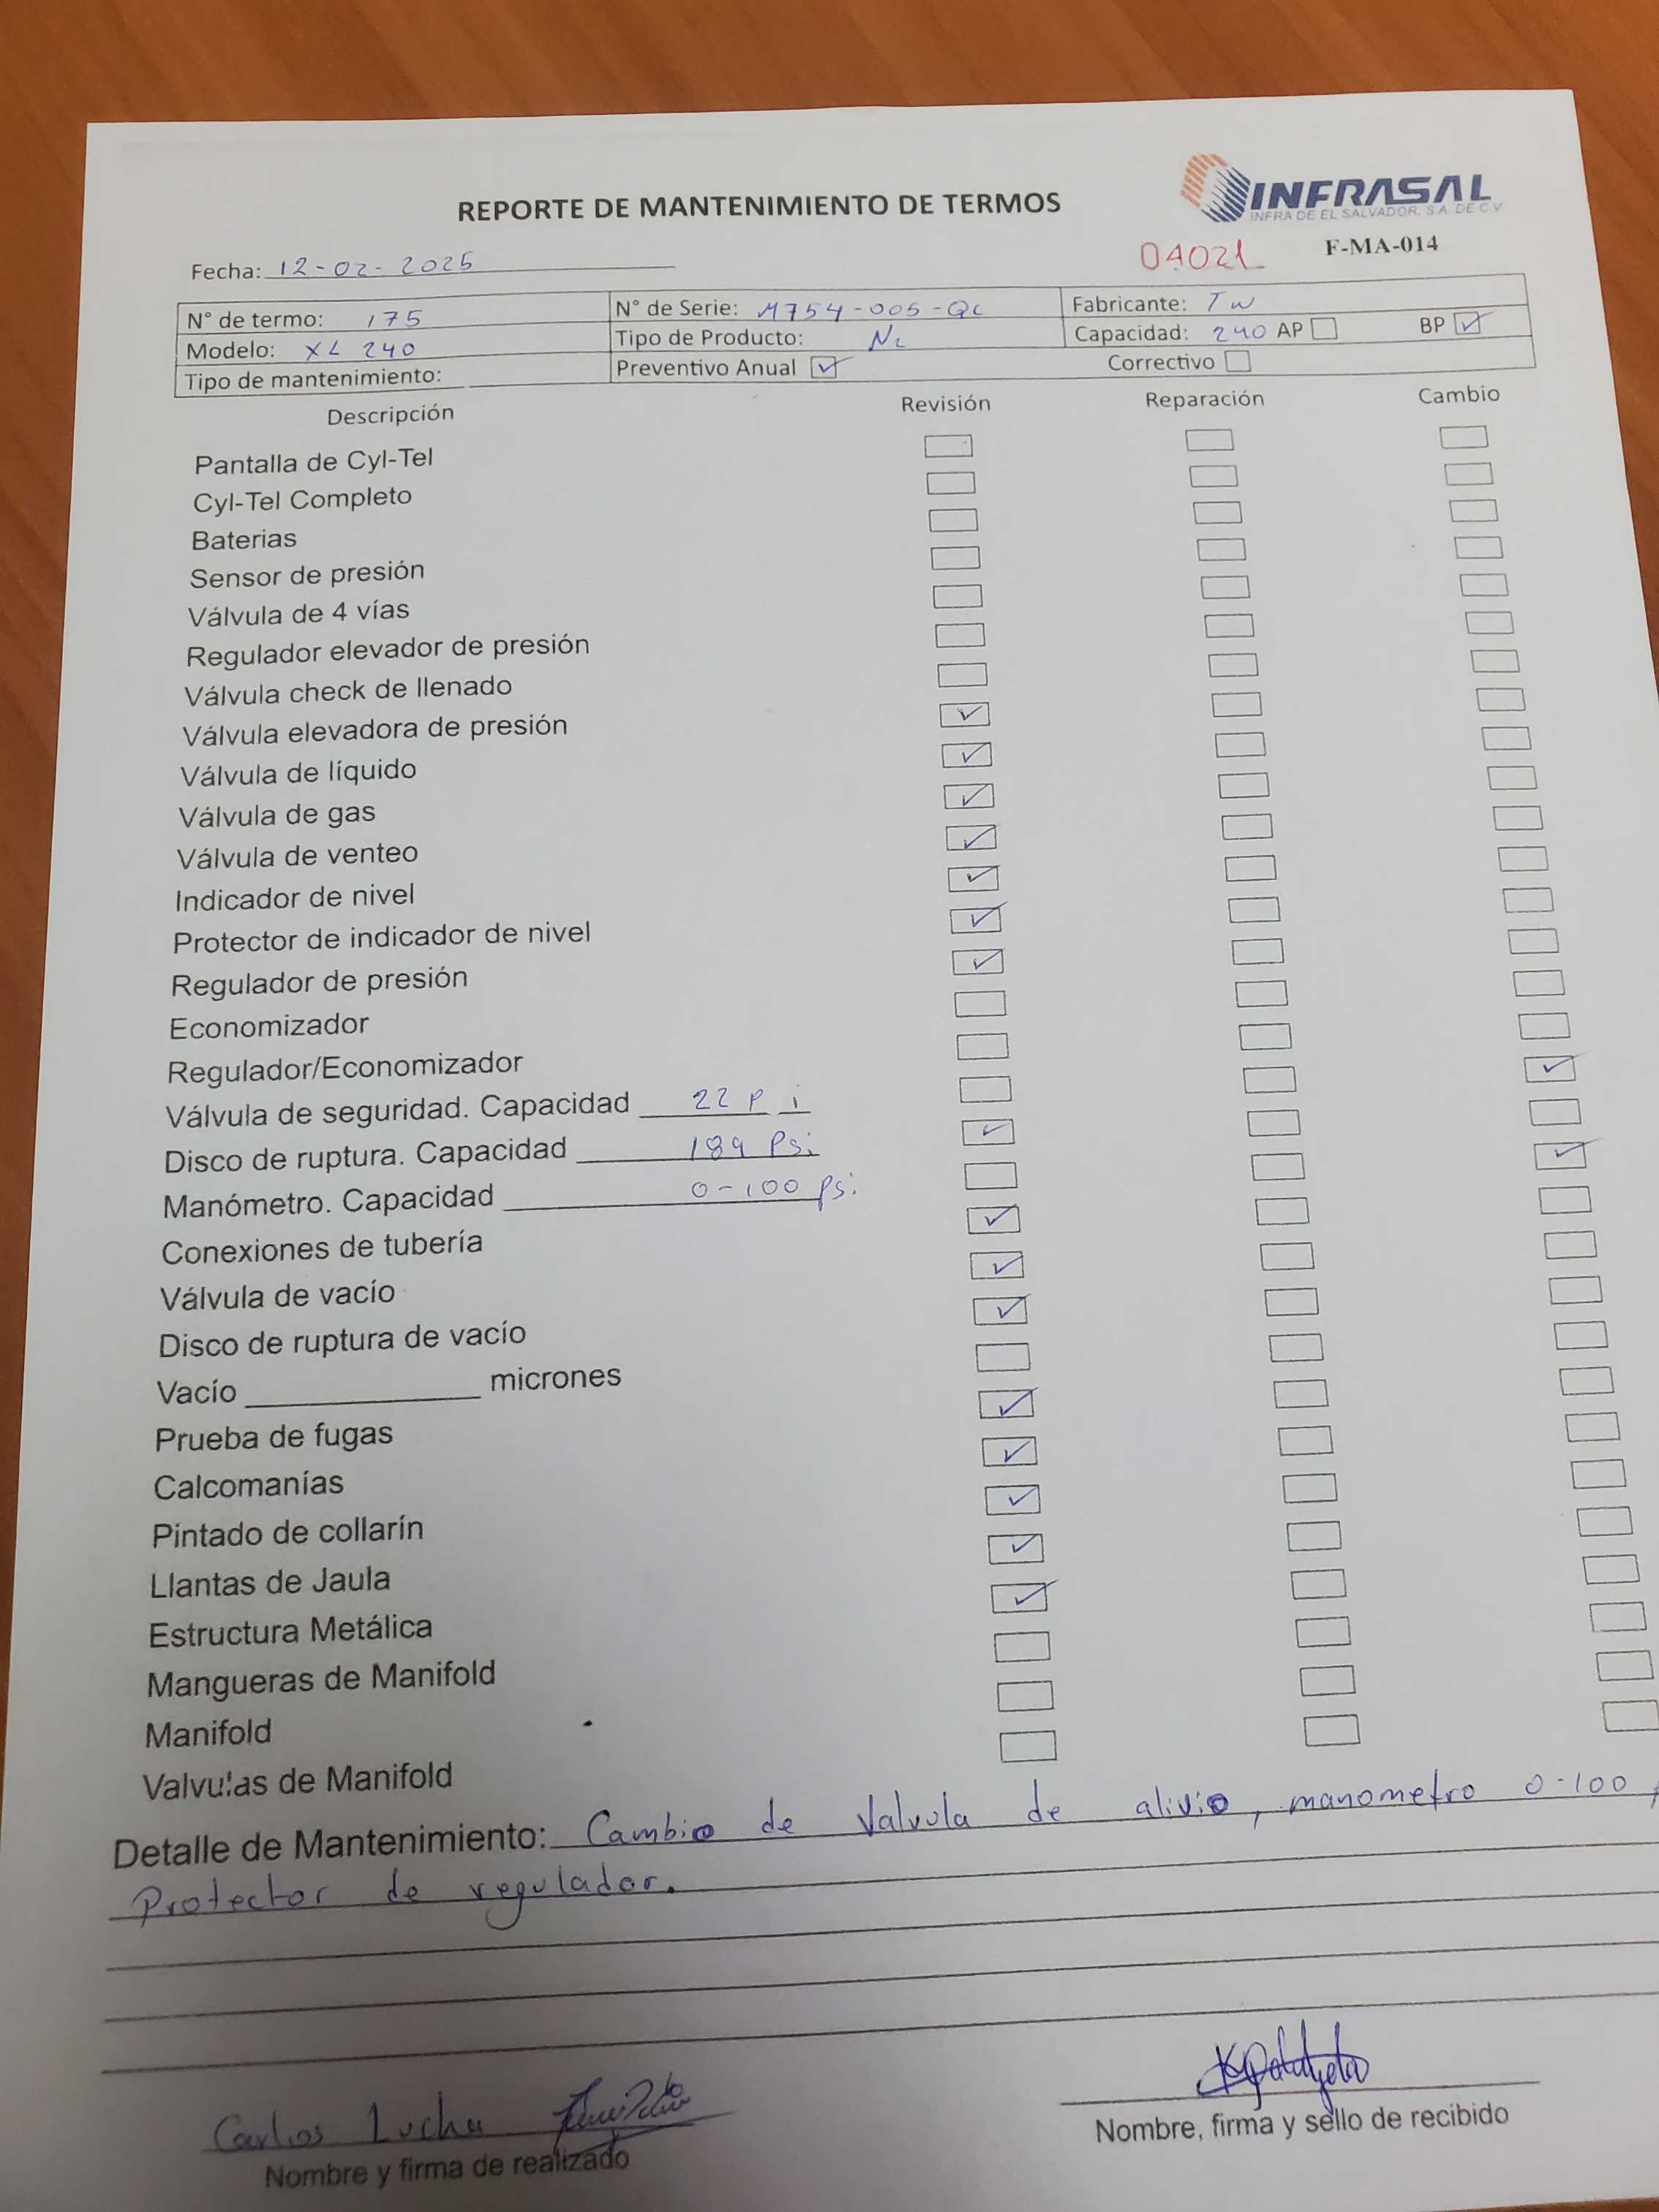 REPORTE DE MANTENIMIENTO DE TERMOS
INFRASAL
INFRA DE EL SALVADOR, S.A. DE C.V.
04021 F-MA-014
Fecha: 12-02-2025
N° de termo: 175 N° de Serie: M754-005-QC Fabricante: TW
Modelo: XL 240 Tipo de Producto: N2 Capacidad: 240 AP BP ✓
Tipo de mantenimiento: Preventivo Anual ✓ Correctivo
Descripción Revisión Reparación Cambio
Pantalla de Cyl-Tel
Cyl-Tel Completo
Baterias
Sensor de presión
Válvula de 4 vías
Regulador elevador de presión
Válvula check de llenado
Válvula elevadora de presión ✓
Válvula de líquido ✓
Válvula de gas ✓
Válvula de venteo ✓
Indicador de nivel ✓
Protector de indicador de nivel ✓
Regulador de presión ✓
Economizador
Regulador/Economizador
Válvula de seguridad. Capacidad 22 P i ✓
Disco de ruptura. Capacidad 189 Psi ✓
Manómetro. Capacidad 0-100 psi ✓
Conexiones de tubería ✓
Válvula de vacío ✓
Disco de ruptura de vacío ✓
Vacío micrones
Prueba de fugas ✓
Calcomanías ✓
Pintado de collarín ✓
Llantas de Jaula ✓
Estructura Metálica ✓
Mangueras de Manifold
Manifold
Valvulas de Manifold
Detalle de Mantenimiento: Cambio de Valvula de alivio, manometro 0-100
Protector de regulador.
Carlos
Nombre y firma de realizado
Nombre, firma y sello de recibido